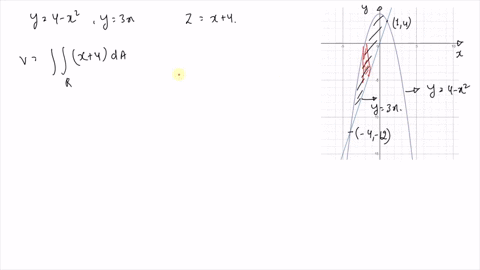 y = 4-x², y = 3x    Z = x+4.
V = ∬ (x+4) dA
R
y
(1,4)
x
→ y = 4-x²
→ y = 3x.
(-4,-12)